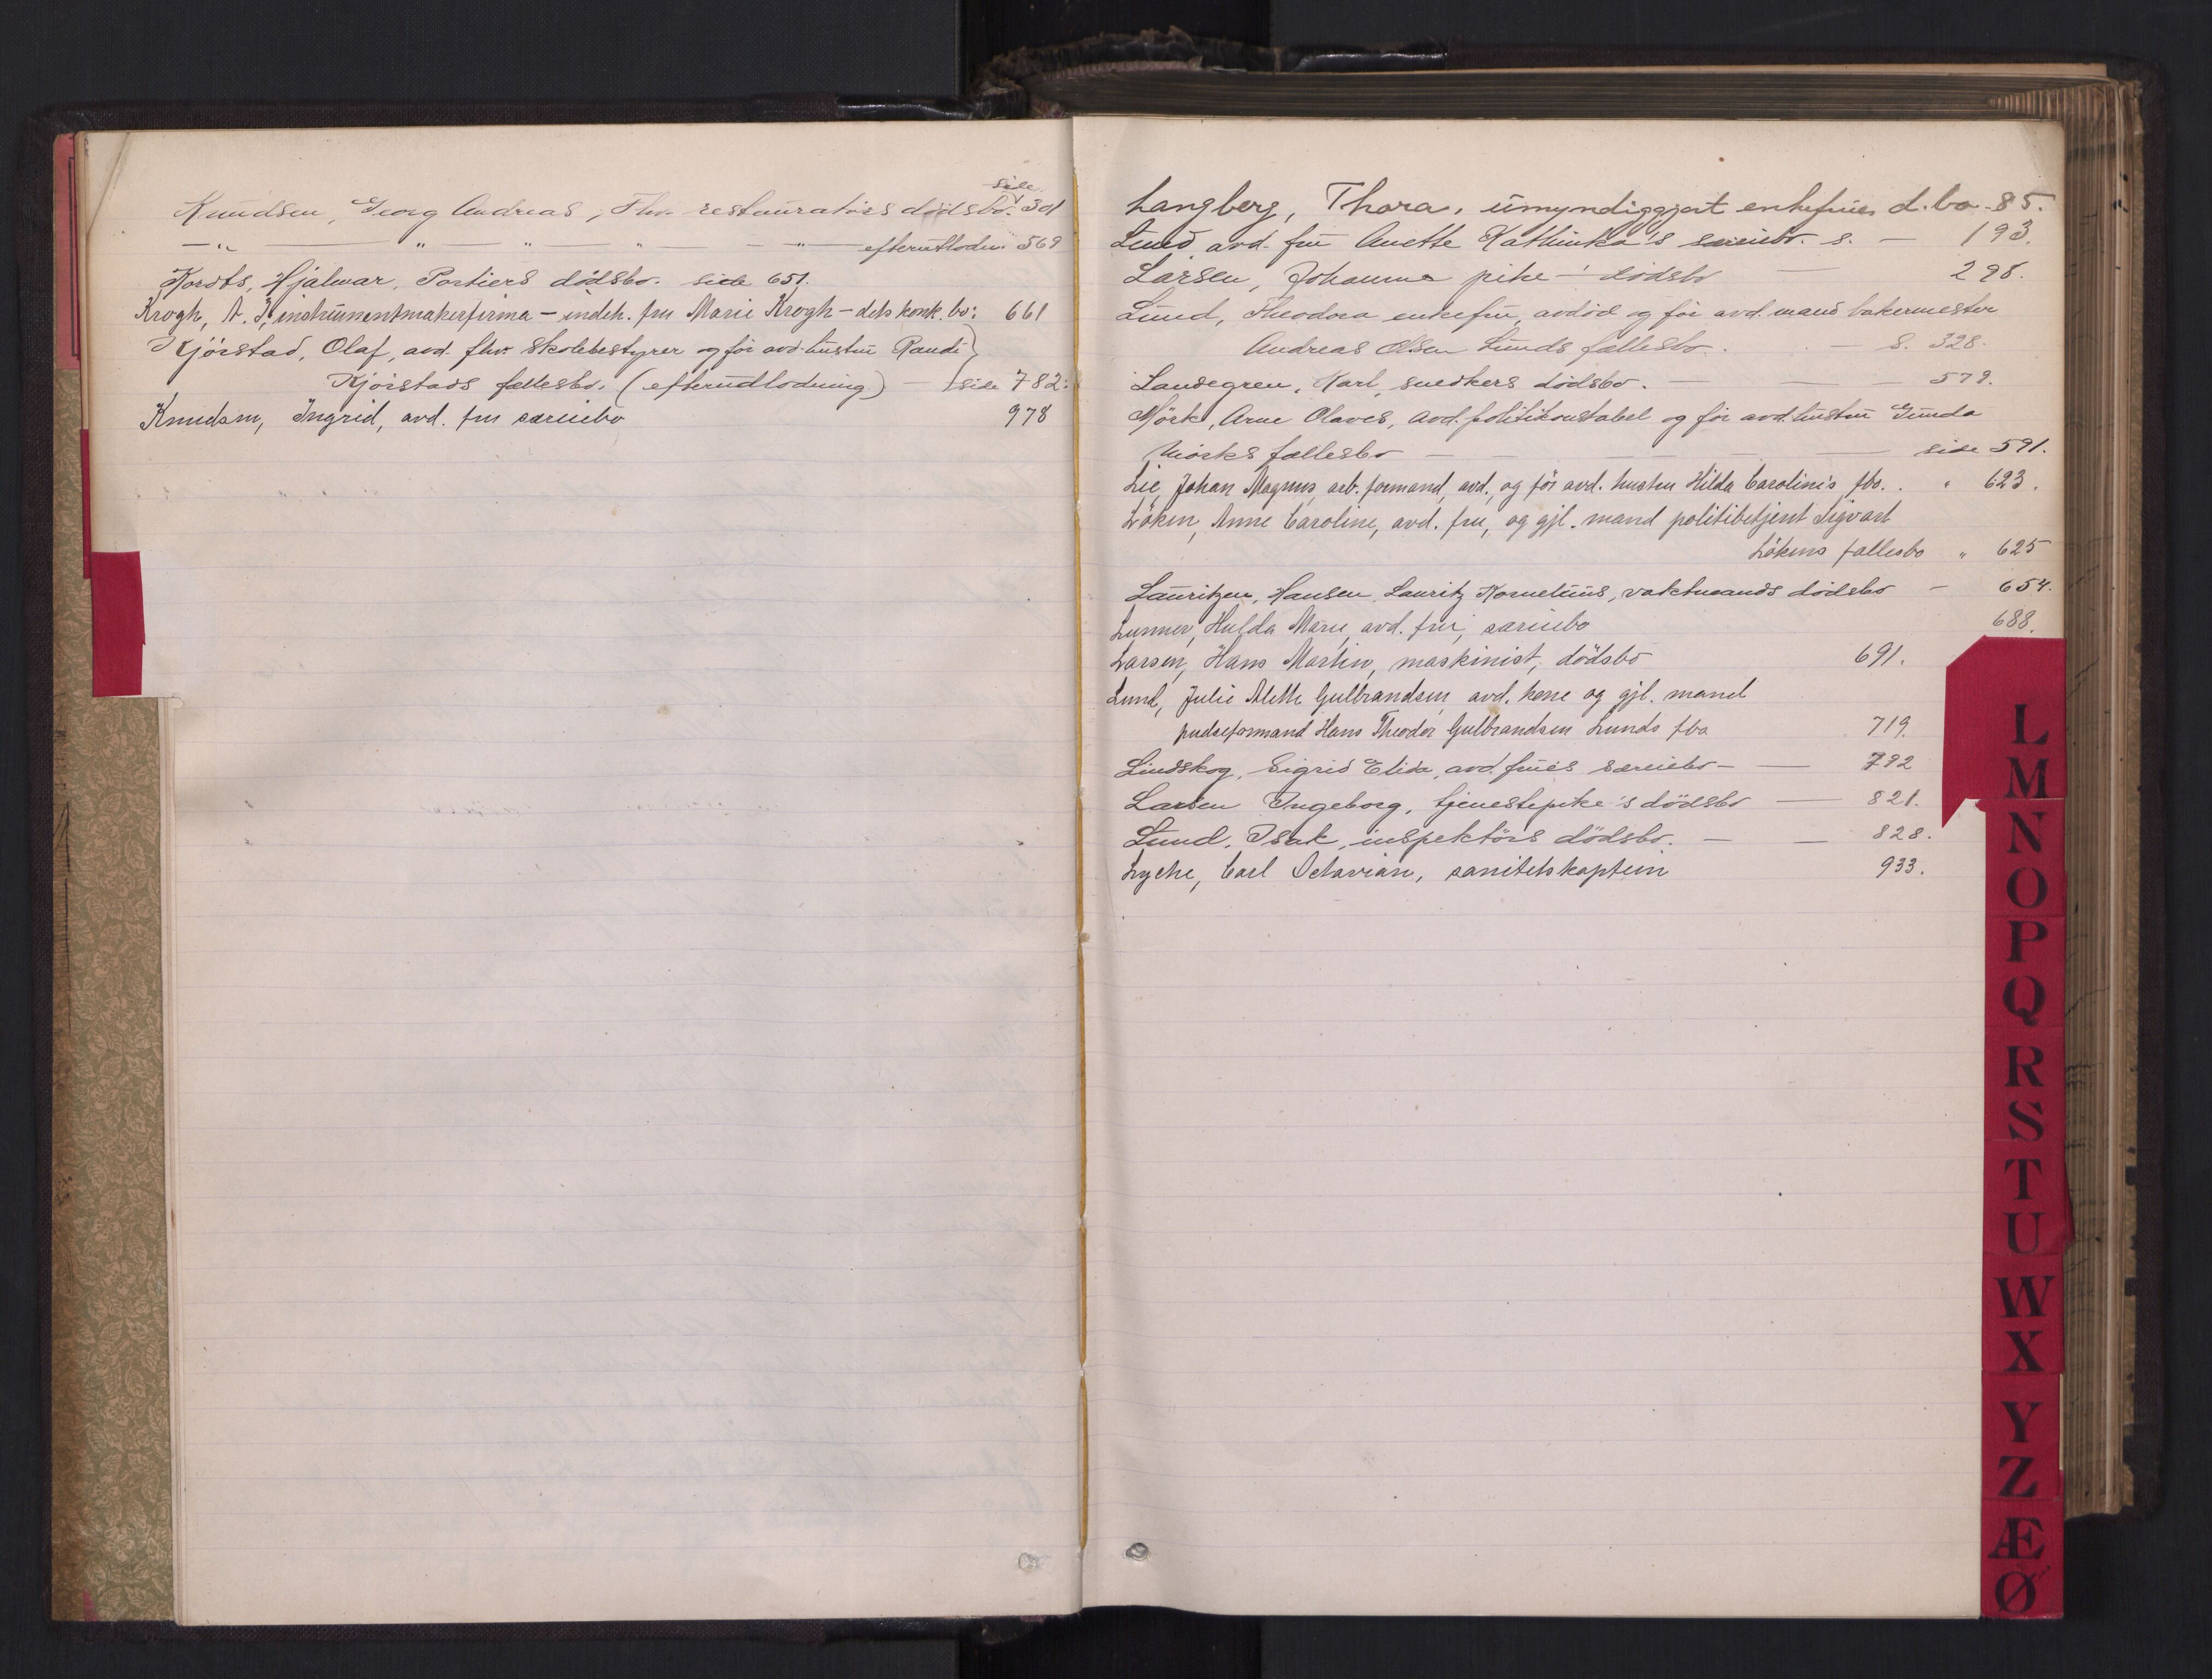 side
Knudsen, Georg Andreas, Fhv. restauratørs dødsbo. 301
—"— — " — " — " — — " — efterutlodn. 569
Kordts, Hjalmar, Portiers dödsbo. side 651.
Krogh, A. J, instrumentmakerfirma — indeh. fru Marie Krogh — dets konk. bo: 661
Kjörstad, Olaf, avd. fhv. Skolebestyrer og før avd. hustru Randi
Kjörstads fællesbo. (efterudlodning) — side 782:
Knudsen, Ingrid, avd. fru særeiebo 978
Langberg, Thora, umyndiggjort enkefrues d.bo - 85.
Lund, avd. fru Anette Kathinka's særeiebo. s. — 193.
Larsen, Johanna pike — dödsbo — 298.
Lund, Theodora enkefru, avdöd og før avd. mand bakermester
Andreas Olsen Lunds fællesbo. — s. 328.
Landegren, Karl, snedkers dödsbo. — — — 579.
Mörk, Arne Olaves, avd. politikonstabel og før avd. hustru Gunda
Mörks fællesbo — — — — side 591.
Lie, Johan Magnus, arb. formand, avd., og før avd. hustru Hilda Carolines fbo. . " 623.
Löken, Anne Caroline, avd. fru, og gjl. mand politibetjent Sigvart
Lökens fællesbo " 625
Lauritzen, Hansen, Lauritz Kornelius, vaktmands dödsbo — 654.
Lunner, Hulda Marie, avd. fru, særeiebo 688.
Larsen, Hans Martin, maskinist, dödsbo 691.
Lund, Julie Alette Gulbrandsen, avd. kone og gjl. mand
pudseformand Hans Theodor Gulbrandsen Lunds fbo 719.
Lindskog, Sigrid Elida, avd. frues særeiebo — — 792
Larsen Ingeborg, tjenestepike's dödsbo — 821.
Lund, Isak, inspektörs dödsbo. — — 828.
Lyche, Carl Octavian, sanitetskaptein 933.
L
M
N
O
P
Q
R
S
T
U
W
X
Y
Z
Æ
Ø